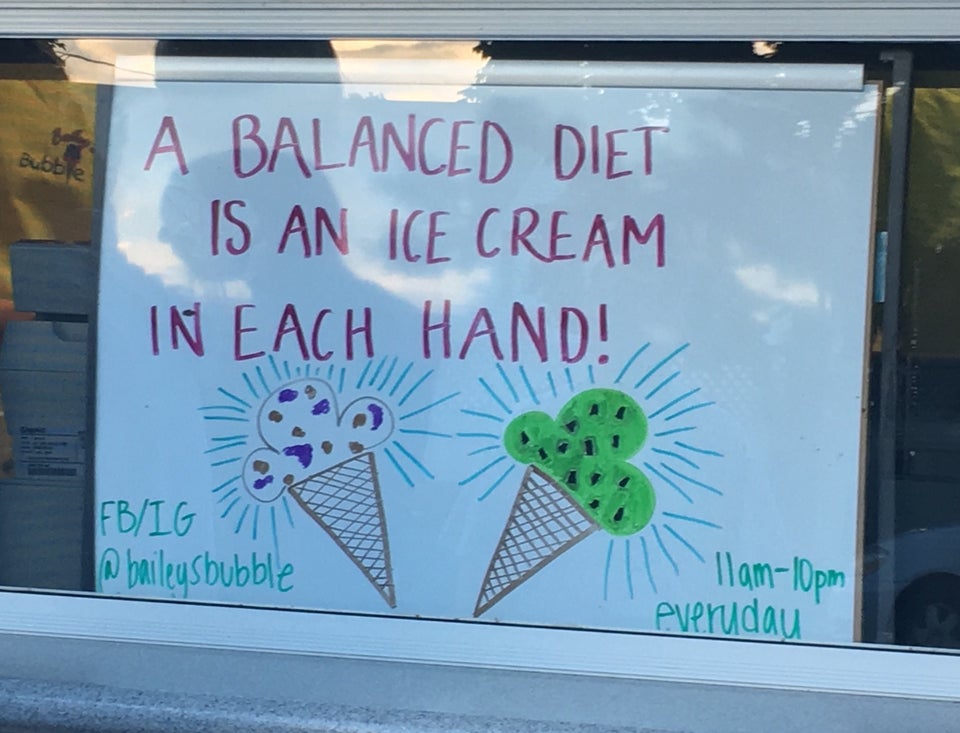 A BALANCED DIET
IS AN ICE CREAM
IN EACH HAND!
FB/IG
@baileysbubble
11am-10pm
everyday
Bubble